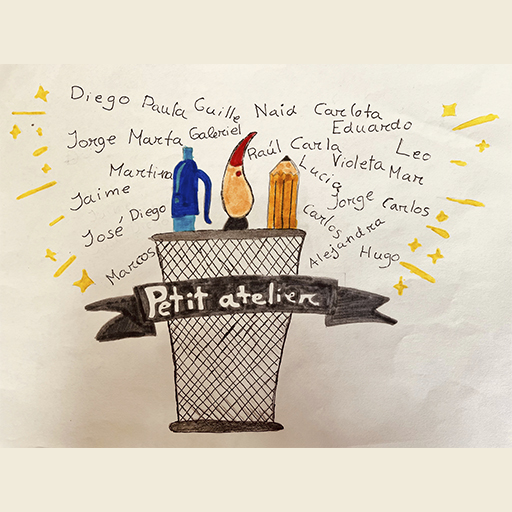 Diego Paula Guille Naid Carlota
Eduardo
Jorge Marta Gabriel Raúl Carla Leo
Martina Lucia Violeta Mar
Jaime Jorge Carlos
José Diego Carlos
Marcos Alejandra Hugo
Petit atelier